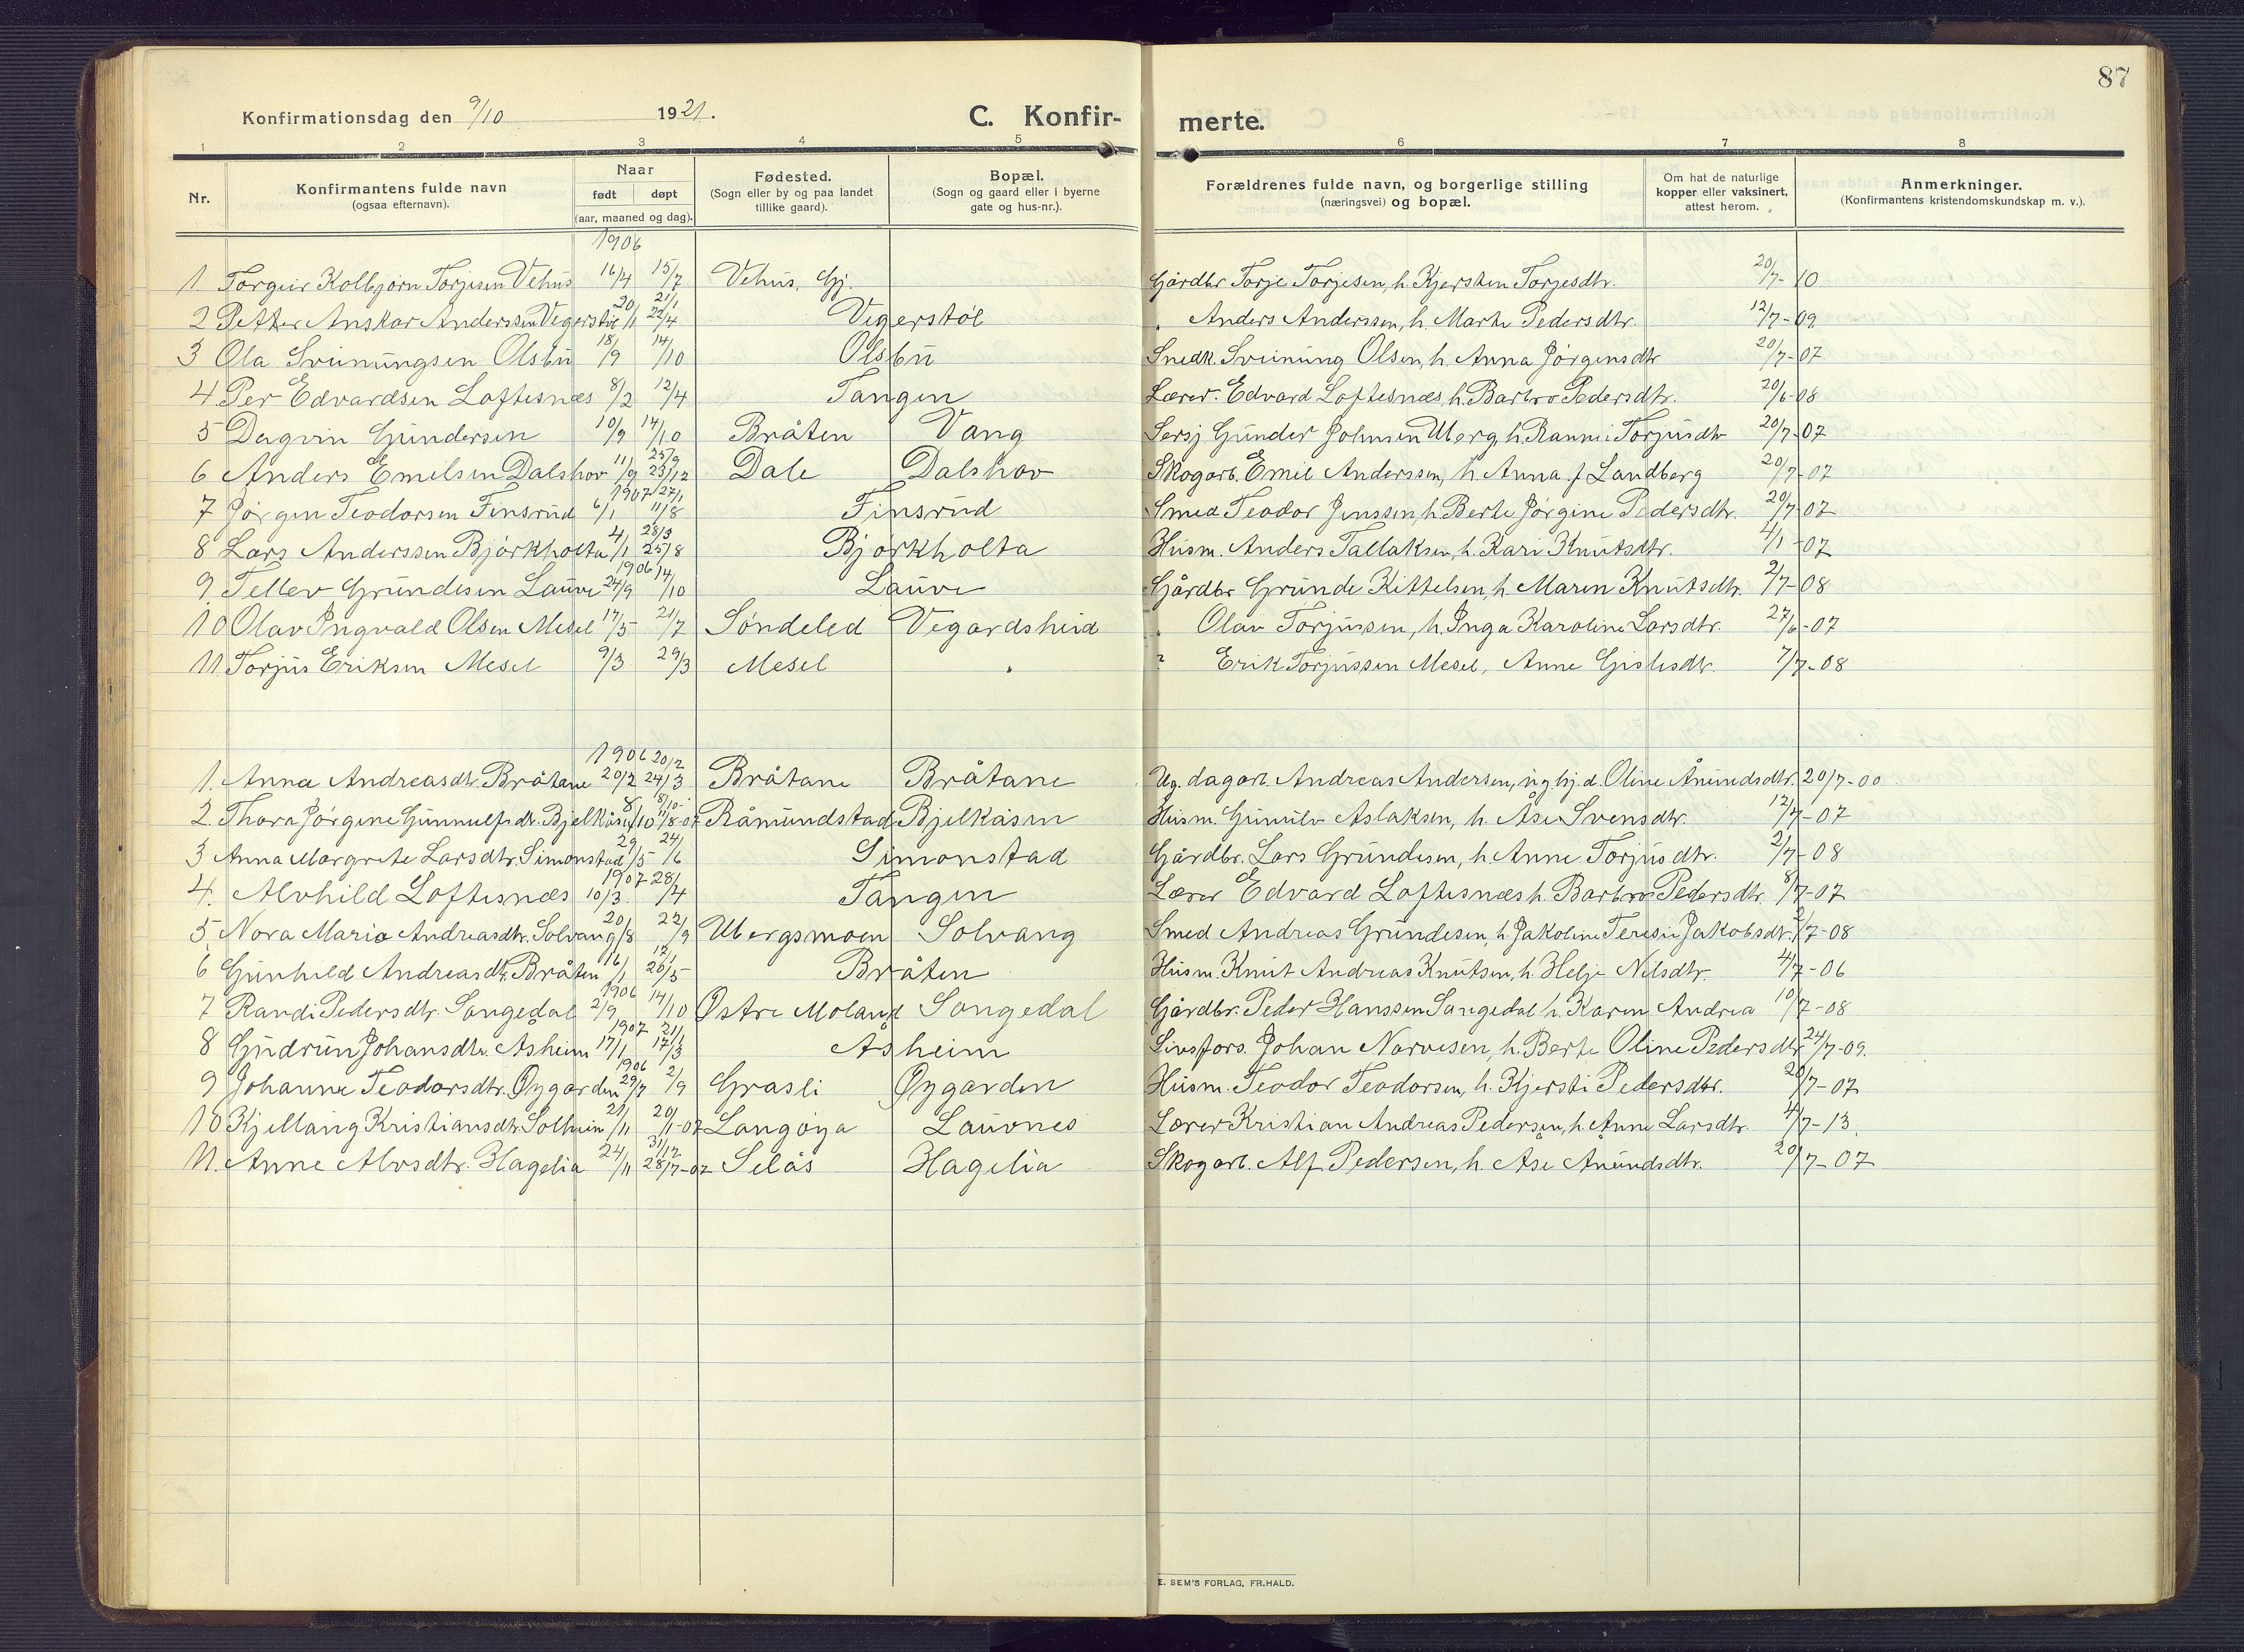 87
Konfirmationsdag den 9/10 1921. C. Konfir- merte.
1 2 3 4 5 6 7 8
Nr. Konfirmantens fulde navn (ogsaa efternavn). Naar født døpt (aar, maaned og dag). Fødested. (Sogn eller by og paa landet tillike gaard). Bopæl. (Sogn og gaard eller i byerne gate og hus-nr.). Forældrenes fulde navn, og borgerlige stilling (næringsvei) og bopæl. Om hat de naturlige kopper eller vaksinert, attest herom. Anmerkninger. (Konfirmantens kristendomskundskap m. v.).
1906
1 Torgeir Kolbjørn Torjesen Vehus 16/4 15/7 Vehus, Gj. Gårdbr Torje Torjesen, h. Kjersten Torjesdtr. 20/7-10
2 Petter Anskar Anderssen Vegerstøl 20/1 21/1 22/4 Vegerstøl " Anders Anderssen, h. Marte Pedersdtr. 12/7-09
3 Ola Sveinungsen Olsbu 18/9 14/10 Olsbu Snedk. Sveinung Olsen, h. Anna Jørgensdtr 20/7-07
4 Per Edvardsen Loftesnæs 8/2 12/4 Tangen Lærer. Edvard Loftesnæs, h. Barbro Pedersdtr. 20/6-08
5 Dagvin Gundersen 10/9 14/10 Bråten Vang Sersj Gunder Johnsen Uberg, h. Ranni Torjusdtr 20/7-07
6 Anders Emilsen Dalshov 11/9 25/9 23/12 Dale Dalshov Skogarb. Emil Anderssen, h. Anna f Landberg 20/7-07
7 Jørgen Teodorsen Finsrud 1907 6/1 27/1 11/8 Finsrud Smed Teodor Jenssen, h. Berte Jørgine Pedersdtr. 20/7-07
8 Lars Anderssen Bjørkholta 4/1 28/3 25/8 Bjørkholta Husm. Anders Tallaksen, h. Kari Knutsdtr. 4/1-07
9 Tellev Grundesen Lauve 1906 24/9 14/10 Lauve Gårdbr Grunde Kittelsen, h. Maren Knutsdtr. 2/7-08
10 Olav Ingvald Olsen Mesel 17/5 21/7 Søndeled Vegardsheid " Olav Torjussen, h. Inga Karoline Larsdtr. 27/6-07
11 Torjus Eriksen Mesel 9/3 29/3 Mesel " " Erik Torjussen Mesel, Anne Gislesdtr. 7/7-08
1906
1. Anna Andreasdtr. Bråtane 20/2 20/2 24/3 Bråtane Bråtane Ug. dagarb. Andreas Andersen, ug. hj. d. Oline Ånundsdtr. 20/7-00
2. Thora Jørgine Gunnulfsdtr. Bjelkåsen 8/10 18/10 11/8-07 Råmundstad Bjelkåsen Husm. Gunulv Aslaksen, h. Åse Svensdtr. 12/7-07
3 Anna Margrete Larsdtr. Simonstad 29/5 24/6 Simonstad Gårdbr. Lars Grundesen, h. Anne Torjusdtr. 2/7-08
4. Alvhild Loftesnæs 1907 10/3 28/4 Tangen Lærer Edvard Loftesnæs h. Barbro Pedersdtr. 8/7-07
5 Nora Maria Andreasdtr. Solvang 20/8 22/9 Ubergsmoen Solvang Smed Andreas Grundesen, h. Jakoline Teresie Jakobsdtr. 2/7-08
6 Gunhild Andreasdtr. Bråten 16/1 17/1 26/5 Bråten Husm. Knut Andreas Knutsen, h. Helje Nilsdtr. 4/7-06
7 Randi Pedersdtr. Songedal 1906 2/9 14/10 Østre Moland Songedal Gårdbr. Peder Hanssen Sangedal h. Karen Andrea 10/7-08
8 Gudrun Johansdtr. Åsheim 1907 17/1 21/1 17/3 Åsheim Livsfors. Johan Narvesen, h. Berte Oline Pedersdtr 24/7-09.
9 Johanne Teodorsdtr. Øygarden 1906 29/7 2/9 Grasli Øygarden Husm. Teodor Teodorsen, h. Kjersti Pedersdtr. 20/7-07
10 Kjellaug Kristiansdtr. Solheim 21/11 20/1-07 Langøya Lauvnes Lærer Kristian Andreas Pedersen, h. Anne Larsdtr. 4/7-13.
11. Anne Alvsdtr. Hagelia 24/11 31/12 28/7-07 Selås Hagelia Skogarb. Alf Pedersen, h. Åse Ånundsdtr. 20/7-07
E. SEM'S FORLAG, FR.HALD.